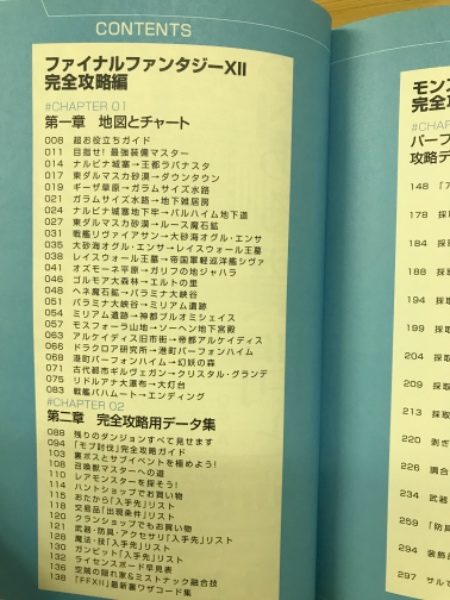 CONTENTS
ファイナルファンタジーXII
完全攻略編
#CHAPTER 01
第一章 地図とチャート
008 超お役立ちガイド
011 目指せ! 最強装備マスター
014 ナルビナ城塞→王都ラバナスタ
017 東ダルマスカ砂漠→ダウンタウン
019 ギーザ草原→ガラムサイズ水路
021 ガラムサイズ水路→地下雑居房
024 ナルビナ城塞地下牢→バルハイム地下道
027 東ダルマスカ砂漠→ルース魔石鉱
031 戦艦リヴァイアサン→大砂海オグル・エンサ
035 大砂海オグル・エンサ→レイスウォール王墓
038 レイスウォール王墓→帝国軍軽巡洋艦シヴァ
041 オズモーネ平原→ガリフの地ジャハラ
046 ゴルモア大森林→エルトの里
048 ヘネ魔石鉱→パラミナ大峡谷
051 パラミナ大峡谷→ミリアム遺跡
054 ミリアム遺跡→神都ブルオミシェイス
057 モスフォーラ山地→ソーヘン地下宮殿
063 アルケイディス旧市街→帝都アルケイディス
066 ドラクロア研究所→港町バーフォンハイム
068 港町バーフォンハイム→幻妖の森
071 古代都市ギルヴェガン→クリスタル・グランデ
075 リドルアナ大瀑布→大灯台
083 戦艦バハムート→エンディング
#CHAPTER 02
第二章 完全攻略用データ集
088 残りのダンジョンすべて見せます
094 「モブ討伐」完全攻略ガイド
103 裏ボスとサブイベントを極めよう!
108 召喚獣マスターへの道
110 レアモンスターを探そう!
114 ハントショップでお買い物
115 おたから「入手先」リスト
118 交易品「出現条件」リスト
120 クランショップでもお買い物
121 武器・防具・アクセサリ「入手先」リスト
128 魔法・技「入手先」リスト
130 ガンビット「入手先」リスト
132 ライセンスボード早見表
136 空賊の隠れ家&ミストナック融合技
138 「FFXII」最新裏ワザコード集
モンス
完全攻
#CHAP
パーフ
攻略デ
148 「ア
178 採取
184 採取
188 採取
194 採取
199 採取
204 採取
209 採取
213 採取
220 剥ぎ
226 調合
234 武器
259 「防具
294 装飾品
297 サルで